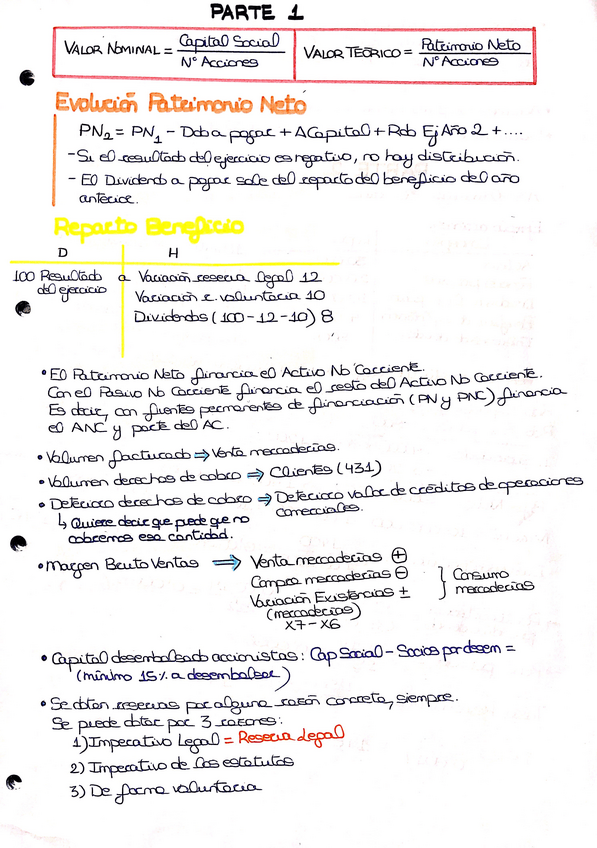 PARTE 1
VALOR NOMINAL = Capital Social / Nº Acciones
VALOR TEÓRICO = Patrimonio Neto / Nº Acciones
Evolución Patrimonio Neto
PN2 = PN1 - Dob a pagar + ACapital + Rdo Ej Año 2 + ....
- Si el resultado del ejercicio es negativo, no hay distribución.
- El Dividendo a pagar sale del reparto del beneficio del año
anterior.
Reparto Beneficio
D H
100 Resultado a Variación reserva legal 12
del ejercicio Variación r. voluntaria 10
Dividendos (100-12-10) 8
• El Patrimonio Neto financia el Activo No Corriente.
Con el Pasivo No Corriente financia el resto del Activo No Corriente.
Es decir, con fuentes permanentes de financiación (PN y PNC) financia
el ANC y parte del AC.
• Volumen facturado ⇒ Venta mercaderías.
• Volumen derechos de cobro ⇒ Clientes (431)
• Deterioro derechos de cobro ⇒ Deterioro valor de créditos de operaciones
comerciales.
↳ Quiere decir que puede que no
cobremos esa cantidad.
• Margen Bruto Ventas ⇒ Venta mercaderías ⊕
Compra mercaderías ⊖
Variación Existencias ±
(mercaderías)
X7 - X6
} Consumo
mercaderías
• Capital desembolsado accionistas: Cap Social - Socios por desem =
(mínimo 15% a desembolsar)
• Se dotan reservas por alguna razón concreta, siempre.
Se puede dotar por 3 razones:
1) Imperativo Legal = Reserva Legal
2) Imperativo de los estatutos
3) De forma voluntaria